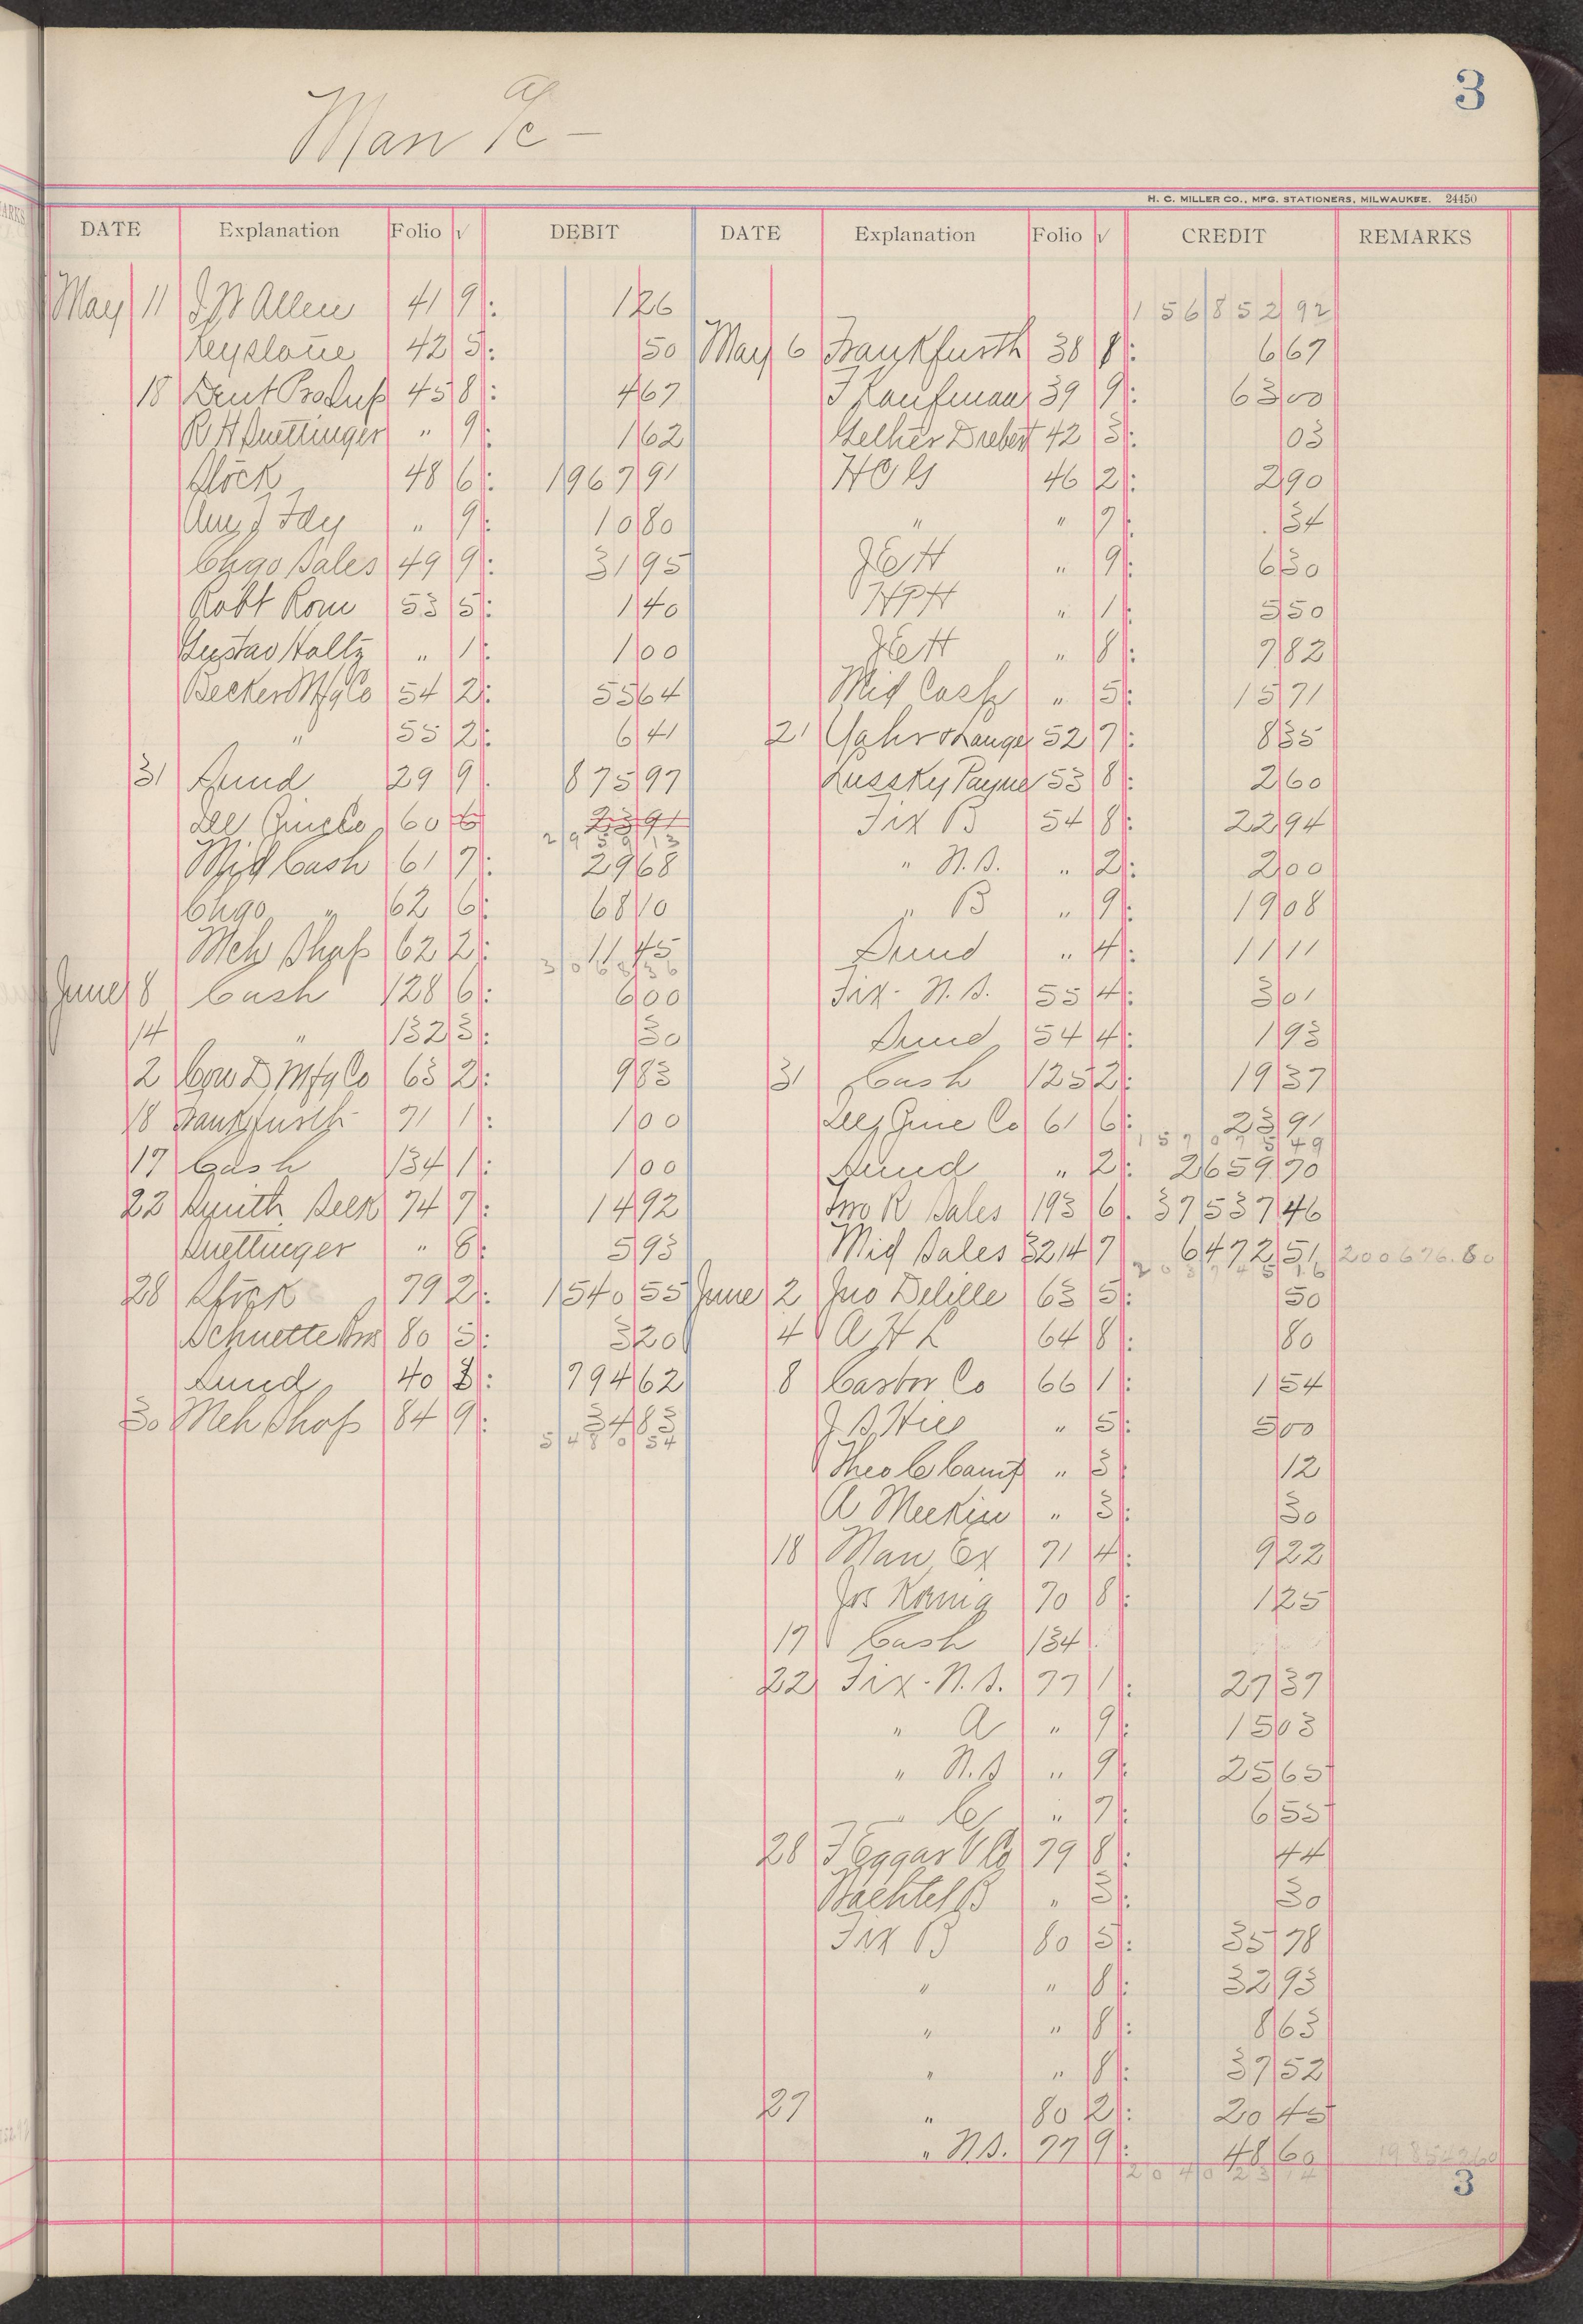 3
Man a/c —
H. C. MILLER CO., MFG. STATIONERS, MILWAUKEE. 24450
DATE Explanation Folio √ DEBIT DATE Explanation Folio √ CREDIT REMARKS
May 11 Allen 41 9 : 1 26
1 56 8 52 92
Keystone 42 5 : 50 May 6 Frankfurth 38 8 : 6 67
18 458 : 4 67 J Kaufman 39 9 : 63 00
R H " 9 : 1 62 42 3 : 03
Stock 48 6 : 1967 91 46 2 : 2 90
Aug J Fay " 9 : 10 80 " " 7 : 34
Chgo Sales 49 9 : 31 95 " 9 : 6 30
Robt Rom 53 5 : 1 40 " 1 : 5 50
Gustav Holtz " 1 : 1 00 " 8 : 7 82
Becker Mfg Co 54 2 : 55 64 Mid Cash " 5 : 15 71
" 55 2 : 6 41 21 52 7 : 8 35
31 Sund 29 9 875 97 Payne 53 8 : 2 60
60 6 23 91 Fix B 54 8 : 22 94
Mid Cash 61 7 : 29 68 " N.S. " 2 : 2 00
Chgo " 62 6 : 68 10 " B " 9 : 19 08
Meh Shop 62 2 : 11 45 Sund " 4 : 11 11
June 8 Cash 128 6 : 6 00 Fix - N.S. 55 4 : 3 01
14 " 132 3 : 30 Sund 54 4 : 1 93
2 Con D Mfg Co 63 2 : 9 83 31 Cash 125 2 : 19 37
18 Frankfurth 71 1 : 1 00 Co 61 6 : 23 91
17 Cash 134 1 : 1 00 Sund " 2 : 2659 70
22 74 7 : 14 92 Sales 193 6 : 37537 46
" 8 : 5 93 Mid Sales 32 14 7 6472 51 200676.80
28 Stock 79 2 : 1540 55 June 2 Jno Delille 63 5 : 50
Schuette Bros 80 5 : 3 20 4 A H L 64 8 : 80
Sund 40 8 : 794 62 8 Castor Co 66 1 : 1 54
30 Meh Shop 84 9 : 34 83 " 5 : 5 00
54 8 0 54
Theo C Camp " 3 12
A Meekin " 3 : 30
18 Man Ex 71 4 : 9 22
Jos Koenig 70 8 : 1 25
17 Cash 134
22 Fix - N.S. 77 1 : 27 37
" A " 9 : 15 03
" N.S " 9 : 25 65
" C " 7 : 6 55
28 79 8 : 44
Bachtel B " 3 : 30
Fix B 80 5 : 35 78
" " 8 : 32 93
" " 8 : 8 63
" " 8 : 37 52
27 " 80 2 : 20 45
" N.S. 77 9 : 48 60
2 0 4 0 2 3 14
3